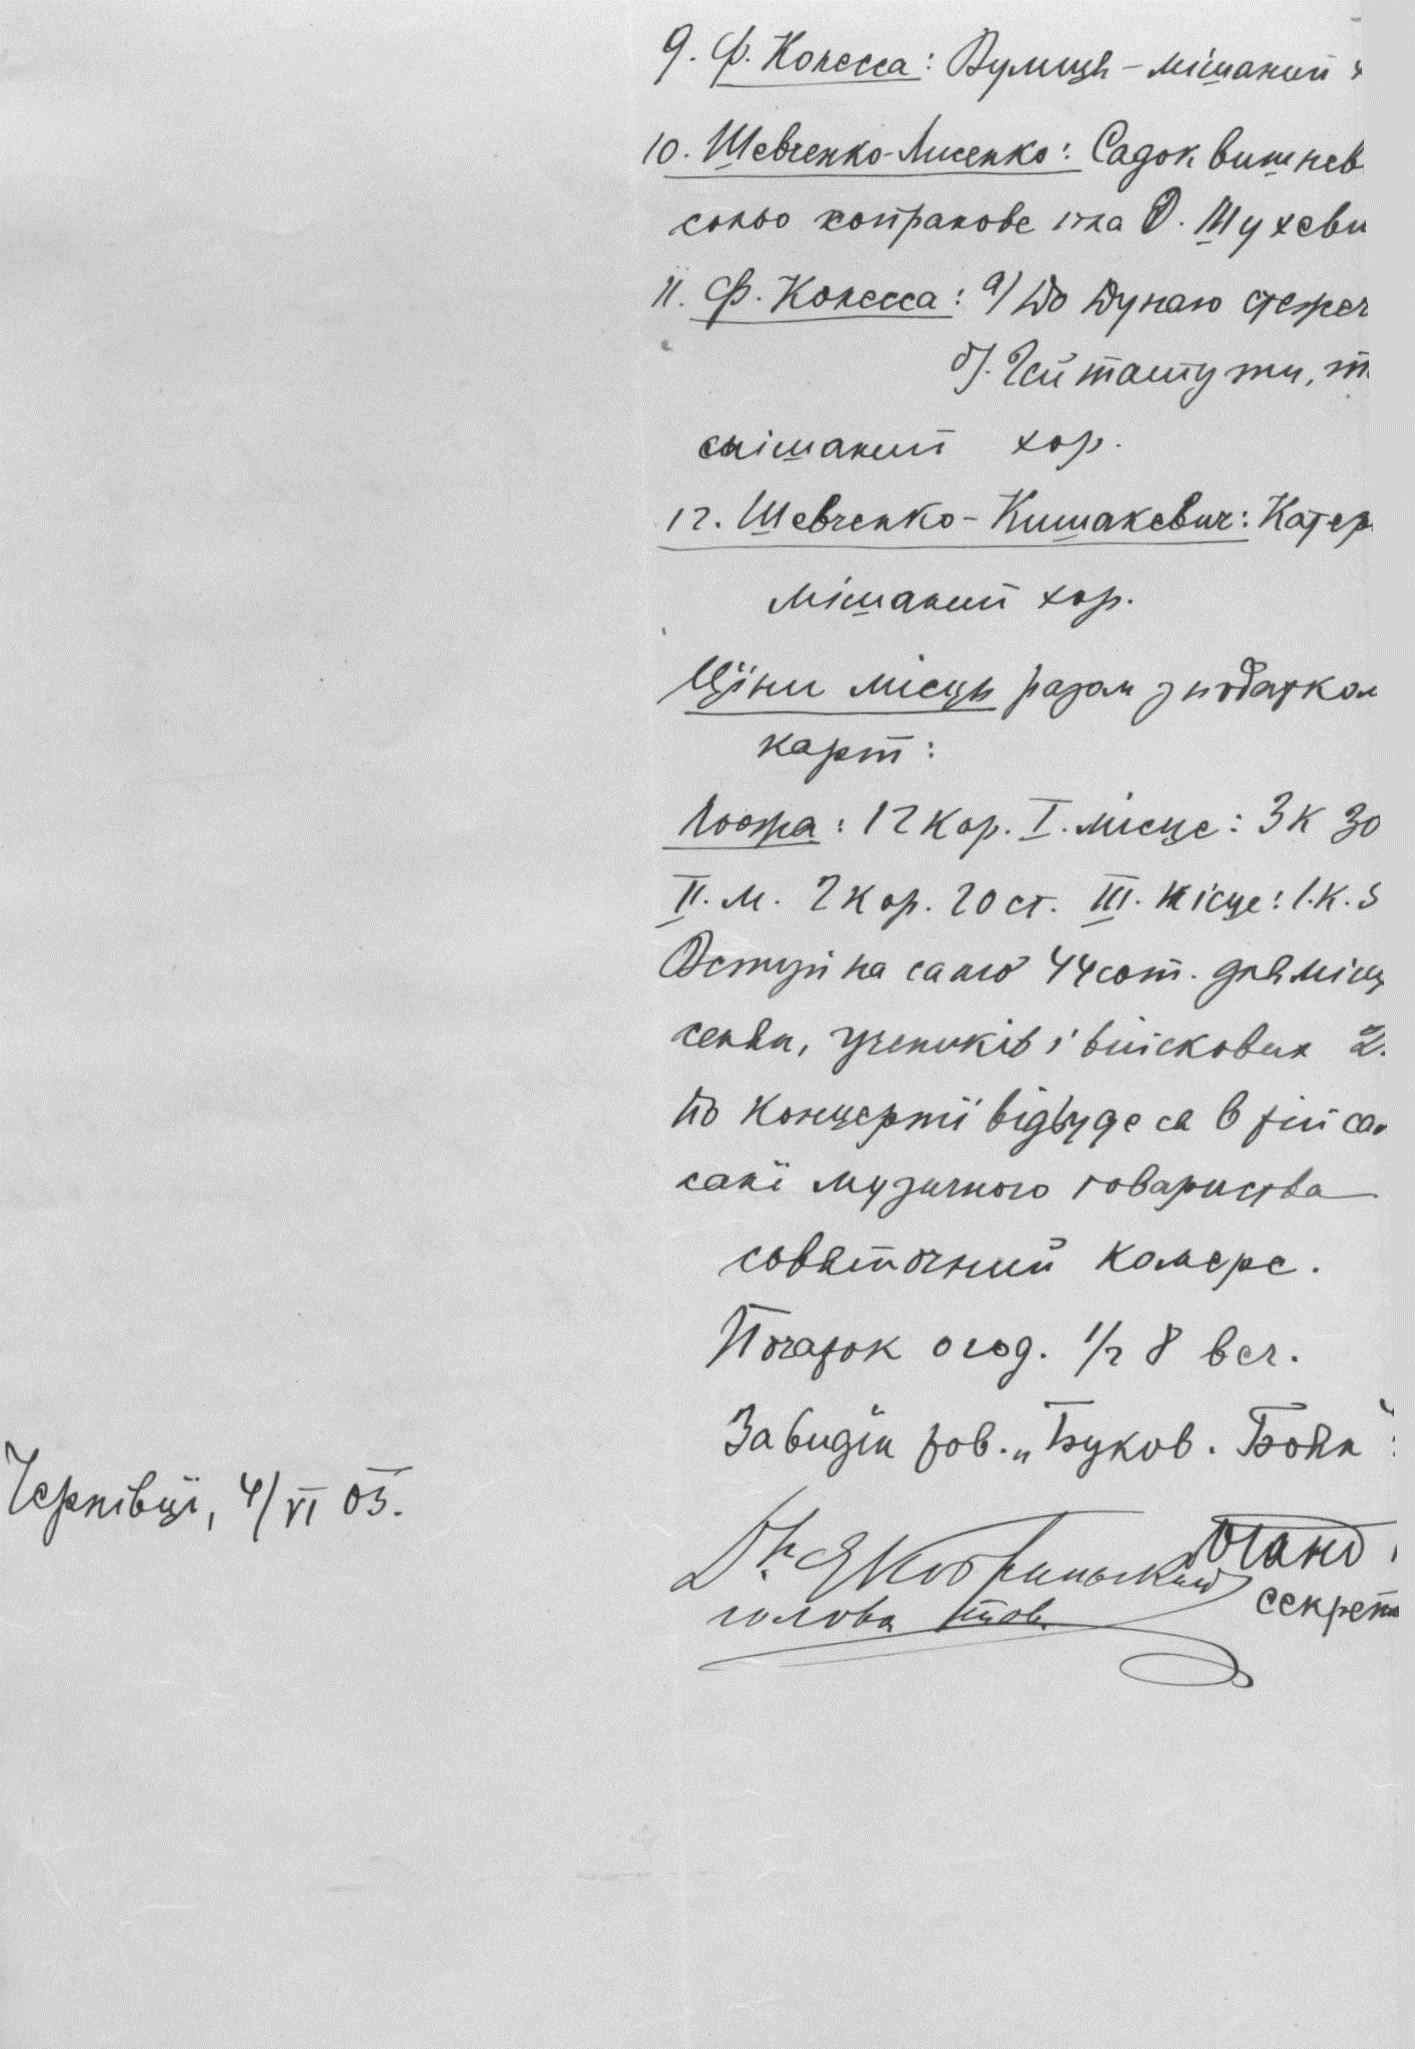 9. Ф. Колесса: Вулиця – мішаний х
10. Шевченко-Лисенко: Садок вишнев
сольо сопранове п-на О. Шухеви
11. Ф. Колесса: а) До Дунаю стежеч
б). Гей там тужи, т
мішаний хор.
12. Шевченко-Кишакевич: Катер
мішаний хор.
Ціни місць разом з податком
карт:
Льожа: 12 Кор. I. місце: 3 К 30
II. м. 2 Кор. 20 ст. III. місце: 1. К. 5
Вступ на салю 44 сот. для міщ
селян, учеників і війскових 2
По концерті відбуде ся в тій са
сали музичного товариства
сьвяточний комерс.
Початок о год. ½ 8 веч.
За виділ тов. „Буков. Боян":
Чернівці, 4/VI 03.
Dr.
голова тов.
секрет